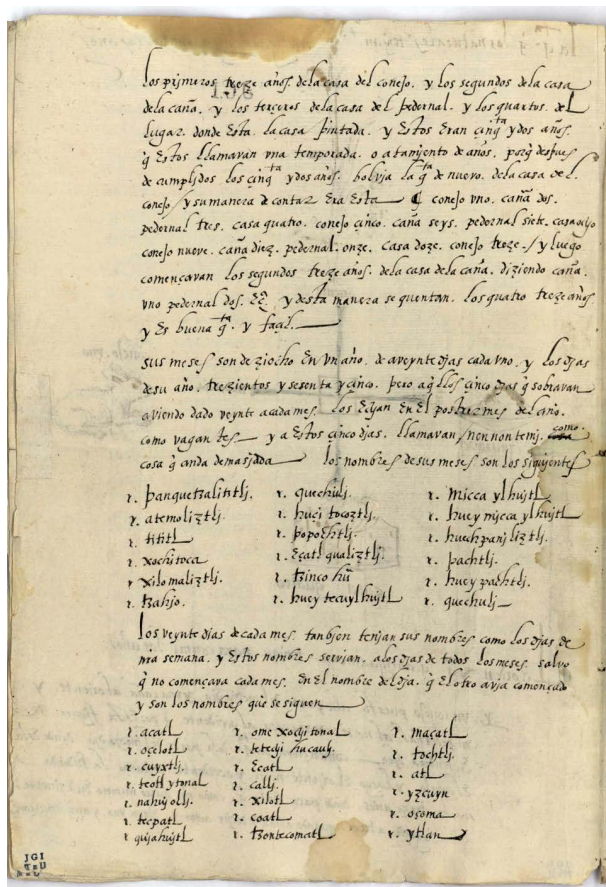 los primeros treze años. dela casa del conejo. y los segundos dela casa
dela caña. y los terçeros dela casa del pedernal. y los quartos. del
lugar. donde esta la casa pintada. y estos eran cinqta y dos años.
q̃ estos llamavan vna temporada. o atamjento de años. porq̃ despues
de cumplidos los cinqta y dos años. bolvia la q̃ta de nuevo. dela casa del.
conejo / y su manera de contar era esta conejo vno. caña dos.
pedernal tres. casa quatro. conejo cinco. caña seys. pedernal siete. casa ocho
conejo nueve. caña diez. pedernal. onze. casa doze. conejo treze. / y luego
començavan los segundos treze años. dela casa dela caña. diziendo caña.
vno pedernal dos. Ec̃. y desta manera se quentan. los quatro treze años
y es buena q̃ta. y façil.
sus meses son deziocho en vn año. de aveynte djas cada vno. y los djas
de su año. trezientos y sesenta y cinco. pero aq̃llos cinco djas q̃ sobravan
aviendo dado veynte acada mes. los echan en el postrer mes del año.
como vagantes y a estos cinco djas. llamavan / nennontemj. como
cosa q̃ anda demasiada los nombres de sus meses son los siguientes
r. panquetzalitztlj. r. quechulj. r. micca ylhujtl
r. atemoliztlj. r. huei toçoztlj. r. huey mjcca ylhujtl
r. tititl r. popochtlj. r. huechpanjliztlj.
r. xochitoca r. Eçatl qualiztlj. r. pachtlj.
r. xilomaliztlj. r. tzinco hũ r. huey pachtlj.
r. tzahio. r. huey tecuylhujtl r. quechulj
los veynte dias de cada mes. tanbien tenjan sus nombres como los djas de
nr̃a semana. y estos nombres servian. alos djas de todos los meses. salvo
q̃ no començava cada mes. en el nombre del dja. q̃ el otro avja començado
y son los nombres que se siguen
r. acatl r. ome xochitonal r. maçatl
r. oçelotl r. tetechi hucauh. r. tochtlj.
r. cuyxtlj. r. Ecatl r. atl
r. teotl ytonal r. callj. r. yzcuyn
r. nahuj ollj. r. xilotl r. oçoma
r. tecpatl r. coatl r. ytlan
r. qujahujtl r. tzontecomatl
JGI